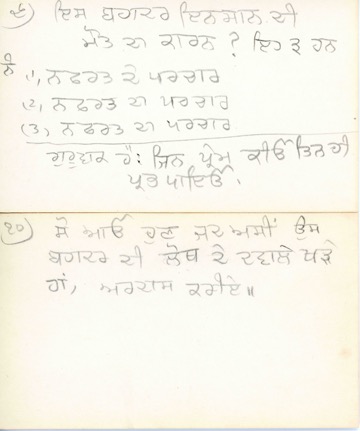 ੯) ਇਸ ਬਹਾਦਰ ਇਨਸਾਨ ਦੀ
ਮੌਤ ਦਾ ਕਾਰਨ ? ਇਹ ੩ ਹਨ
ਨੰ
(1), ਨਫਰਤ ਦੇ ਪਰਚਾਰ
(2), ਨਫਰਤ ਦਾ ਪਰਚਾਰ
(3) ਨਫਰਤ ਦਾ ਪਰਚਾਰ
ਹੈ: ਜਿਨ ਪ੍ਰੇਮ ਕੀਓ ਤਿਨ ਹੀ
ਪ੍ਰਭ ਪਾਇਓ.
੧੦) ਸੋ ਆਓ ਹੁਣ ਜਦ ਅਸੀਂ ਉਸ
ਬਹਾਦਰ ਦੀ ਲੋਥ ਦੇ ਦਵਾਲੇ ਖੜੇ
ਹਾਂ, ਅਰਦਾਸ ਕਰੀਏ॥